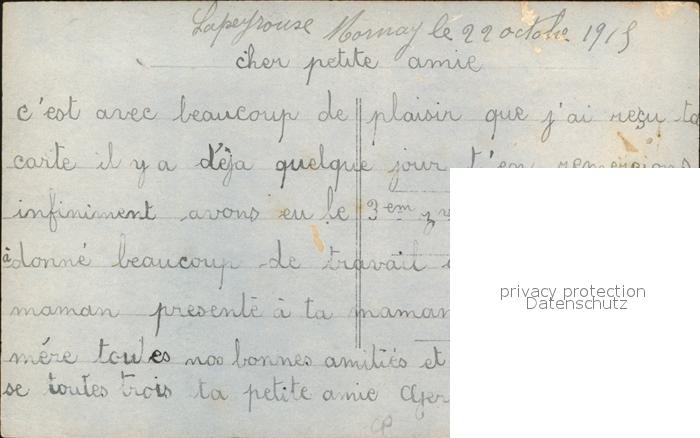 Lapeyrouse Mornay le 22 octobre 1915
cher petite amie
c'est avec beaucoup de plaisir que j'ai reçu ta
carte il y a déja quelque jour t'en remersions
infiniment avons eu le 3em
à donné beaucoup de travail
maman presenté à ta maman
mére toutes nos bonnes amitiés et
se toutes trois ta petite amie
privacy protection
Datenschutz
CP